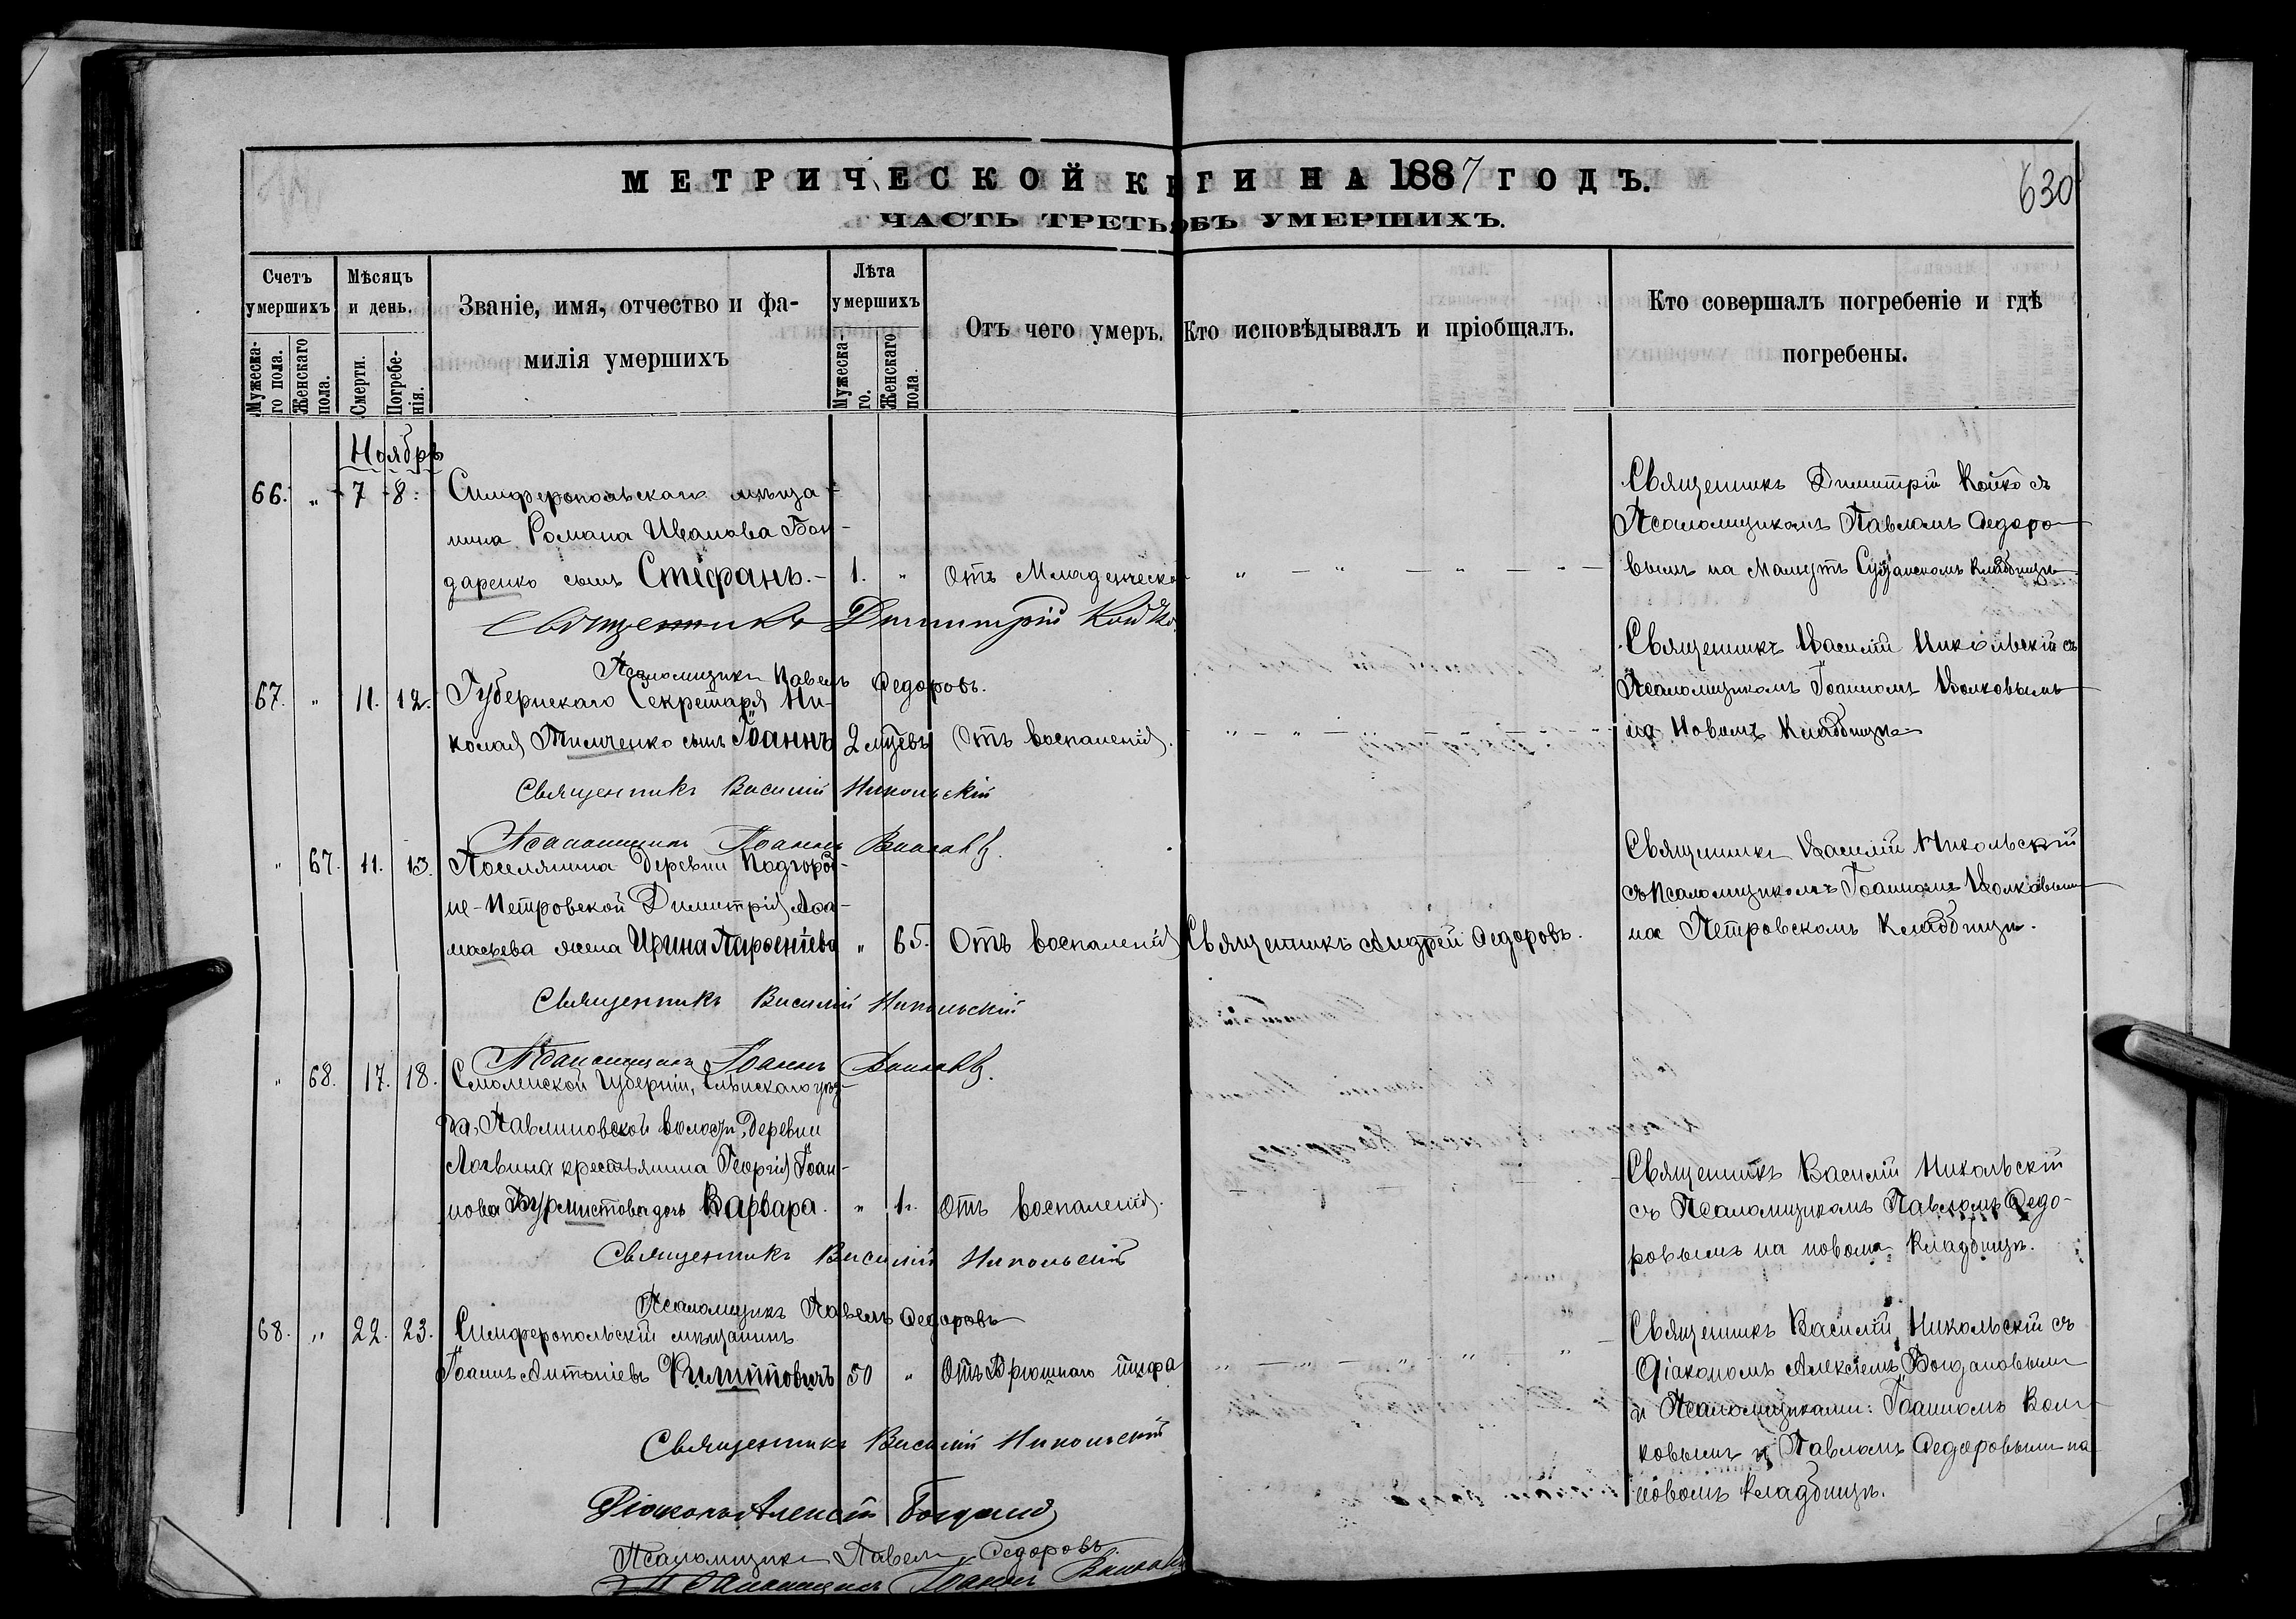 МЕТРИЧЕСКОЙ КНГИ НА 1887 ГОДЪ.
630
ЧАСТЬ ТРЕТЬЯ ОБЪ УМЕРШИХЪ.
Счетъ умершихъ
Мужеска-го пола.
Женскаго пола.
Мѣсяцъ и день.
Смерти.
Погребе-нія.
Званіе, имя, отчество и фа-
милія умершихъ
Лѣта умершихъ
Мужеска-го.
Женскаго пола.
Отъ чего умеръ.
Кто исповѣдывалъ и пріобщалъ.
Кто совершалъ погребеніе и гдѣ
погребены.
Ноябрь
66. " 7 8. Симферопольскаго мѣща-
нина Романа Иванова Бон-
даренко сынъ Стефанъ. 1. " Отъ Младенческо
Священникъ Димитрій Койко съ
Псаломщикомъ Павломъ Федоро-
вымъ на Кладбищѣ
Священникъ Димитрій Койко.
Псаломщикъ Павелъ Федоровъ.
67. " 11. 12. Губернскаго Секретаря Ни-
колая Тимченко сынъ Іоаннъ 2 мѣсяцъ Отъ воспаленія.
Священникъ Василій Никольскій съ
Псаломщикомъ Іоанномъ Волковымъ
на Новомъ Кладбищѣ
Священникъ Василій Никольскій
Псаломщикъ Іоаннъ Волковъ.
" 67. 11. 13. Поселянина деревни Подгород-
не-Петровской Димитрія
жена Ирина Парѳентіева " 65. Отъ воспаленія Священникъ Андрей Федоровъ.
Священникъ Василій Никольскій
съ Псаломщикомъ Іоанномъ Волковымъ
на Петровскомъ Кладбищѣ.
Священникъ Василій Никольскій
Псаломщикъ Іоаннъ Волковъ.
" 68. 17. 18. Смоленской Губерніи, Ельнскаго уѣз-
да, Павлиновской волости, деревни
Логвина крестьянина Георгія Іоан-
нова Бурмистова дочь Варвара. " 1. Отъ воспаленія.
Священникъ Василій Никольскій
съ Псаломщикомъ Павломъ Федо-
ровымъ на новомъ Кладбищѣ.
Священникъ Василій Никольскій
Псаломщикъ Павелъ Федоровъ
68. " 22. 23. Симферопольскій мѣщанинъ
Іоаннъ Антоніевъ Филипповичъ 50 " Отъ Брюшнаго тифа
Священникъ Василій Никольскій съ
Діакономъ Алексіемъ Богдановымъ
и Псаломщиками: Іоанномъ Вол-
ковымъ и Павломъ Федоровымъ на
новомъ кладбищѣ.
Священникъ Василій Никольскій
Діаконъ Алексій Богданов
Псаломщикъ Павелъ Федоровъ
Псаломщикъ Іоаннъ Волковъ